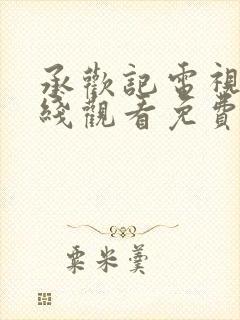 承歡記電視
綫觀看免費
粟米羹